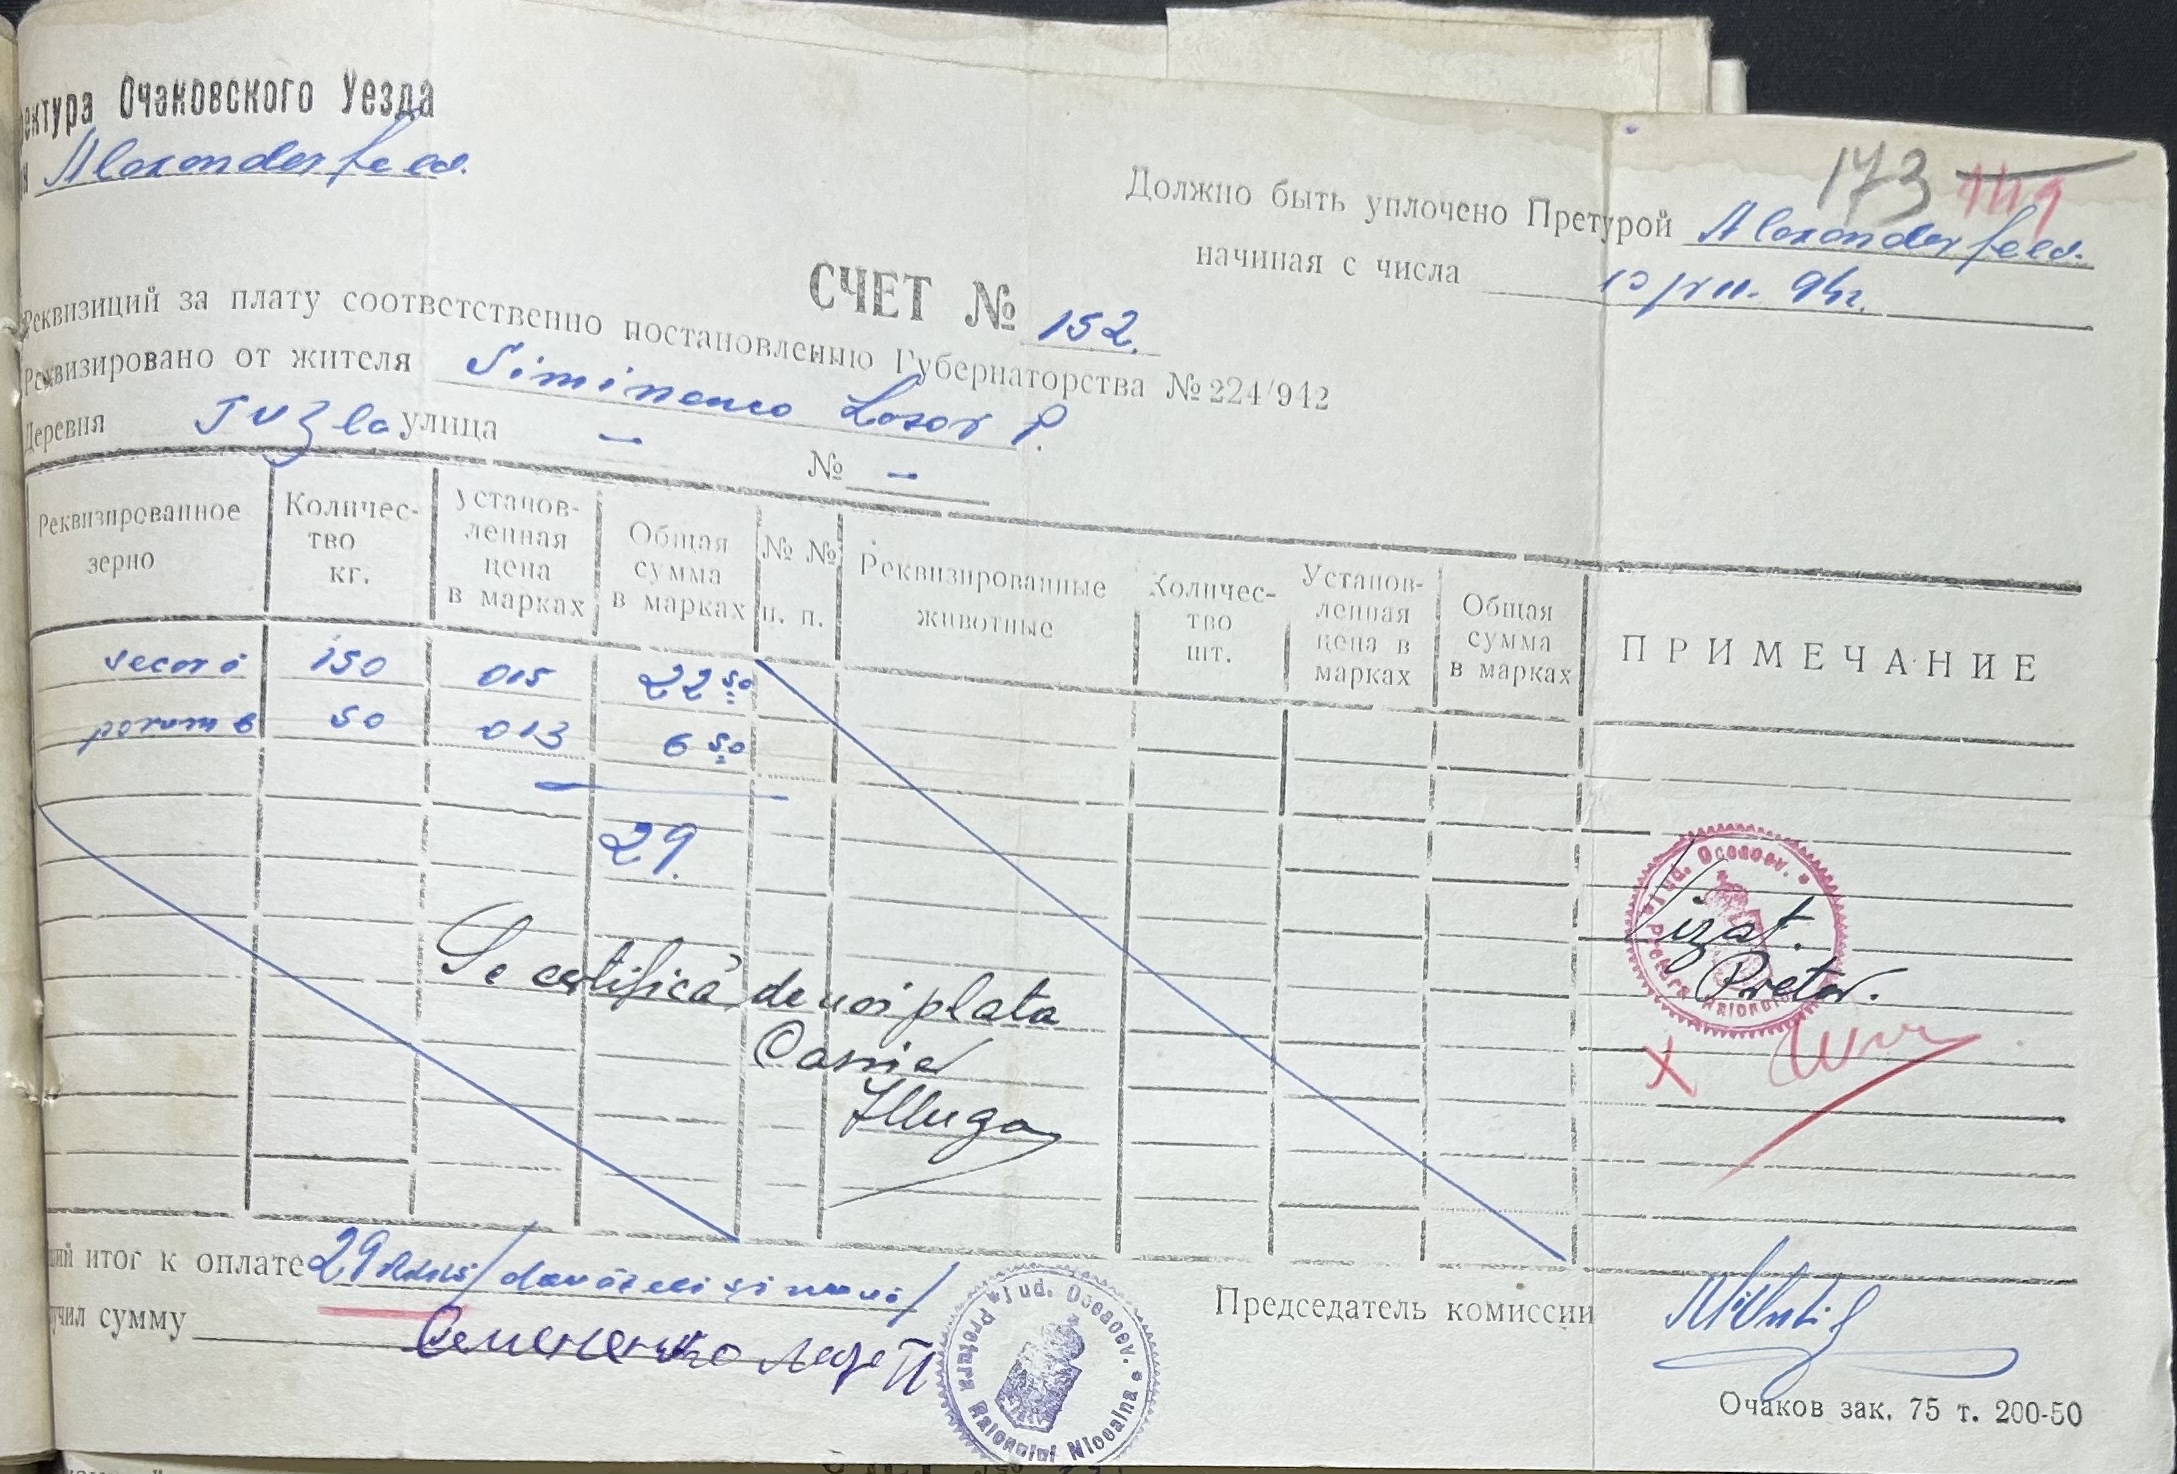 ектура Очаковского Уезда
Alexanderfeld.
173 119
Должно быть уплочено Претурой Alexanderfeld.
начиная с числа 10/VII. 942.
СЧЕТ № 152.
Реквизиций за плату соответственно постановлению Губернаторства № 224/942
Реквизировано от жителя Siminenco Lazar P.
Деревня Tuzla улица — № —
Реквизированное зерно
Количес-тво кг.
Установ-ленная цена в марках
Общая сумма в марках
№ № п. п.
Реквизированные животные
Количес-тво шт.
Установ-ленная цена в марках
Общая сумма в марках
ПРИМЕЧАНИЕ
secară 150 015 22 50
porumb 50 013 6 50
29.
Se certifică de noi plata
Casier
Vizat.
Pretor.
Jud. Oceacov. Pretura Raionului
щий итог к оплате 29 /douăzeci și nouă/
учил сумму Семененко Лазе П
Jud. Oceacov. Pretura Raionului
Председатель комиссии
Очаков зак. 75 т. 200-50